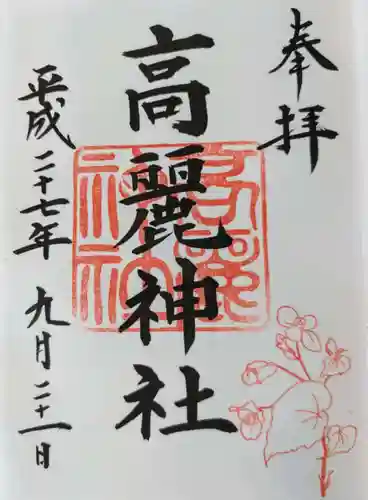 奉拝
高麗神社
高麗神社
平成二十七年九月二十一日